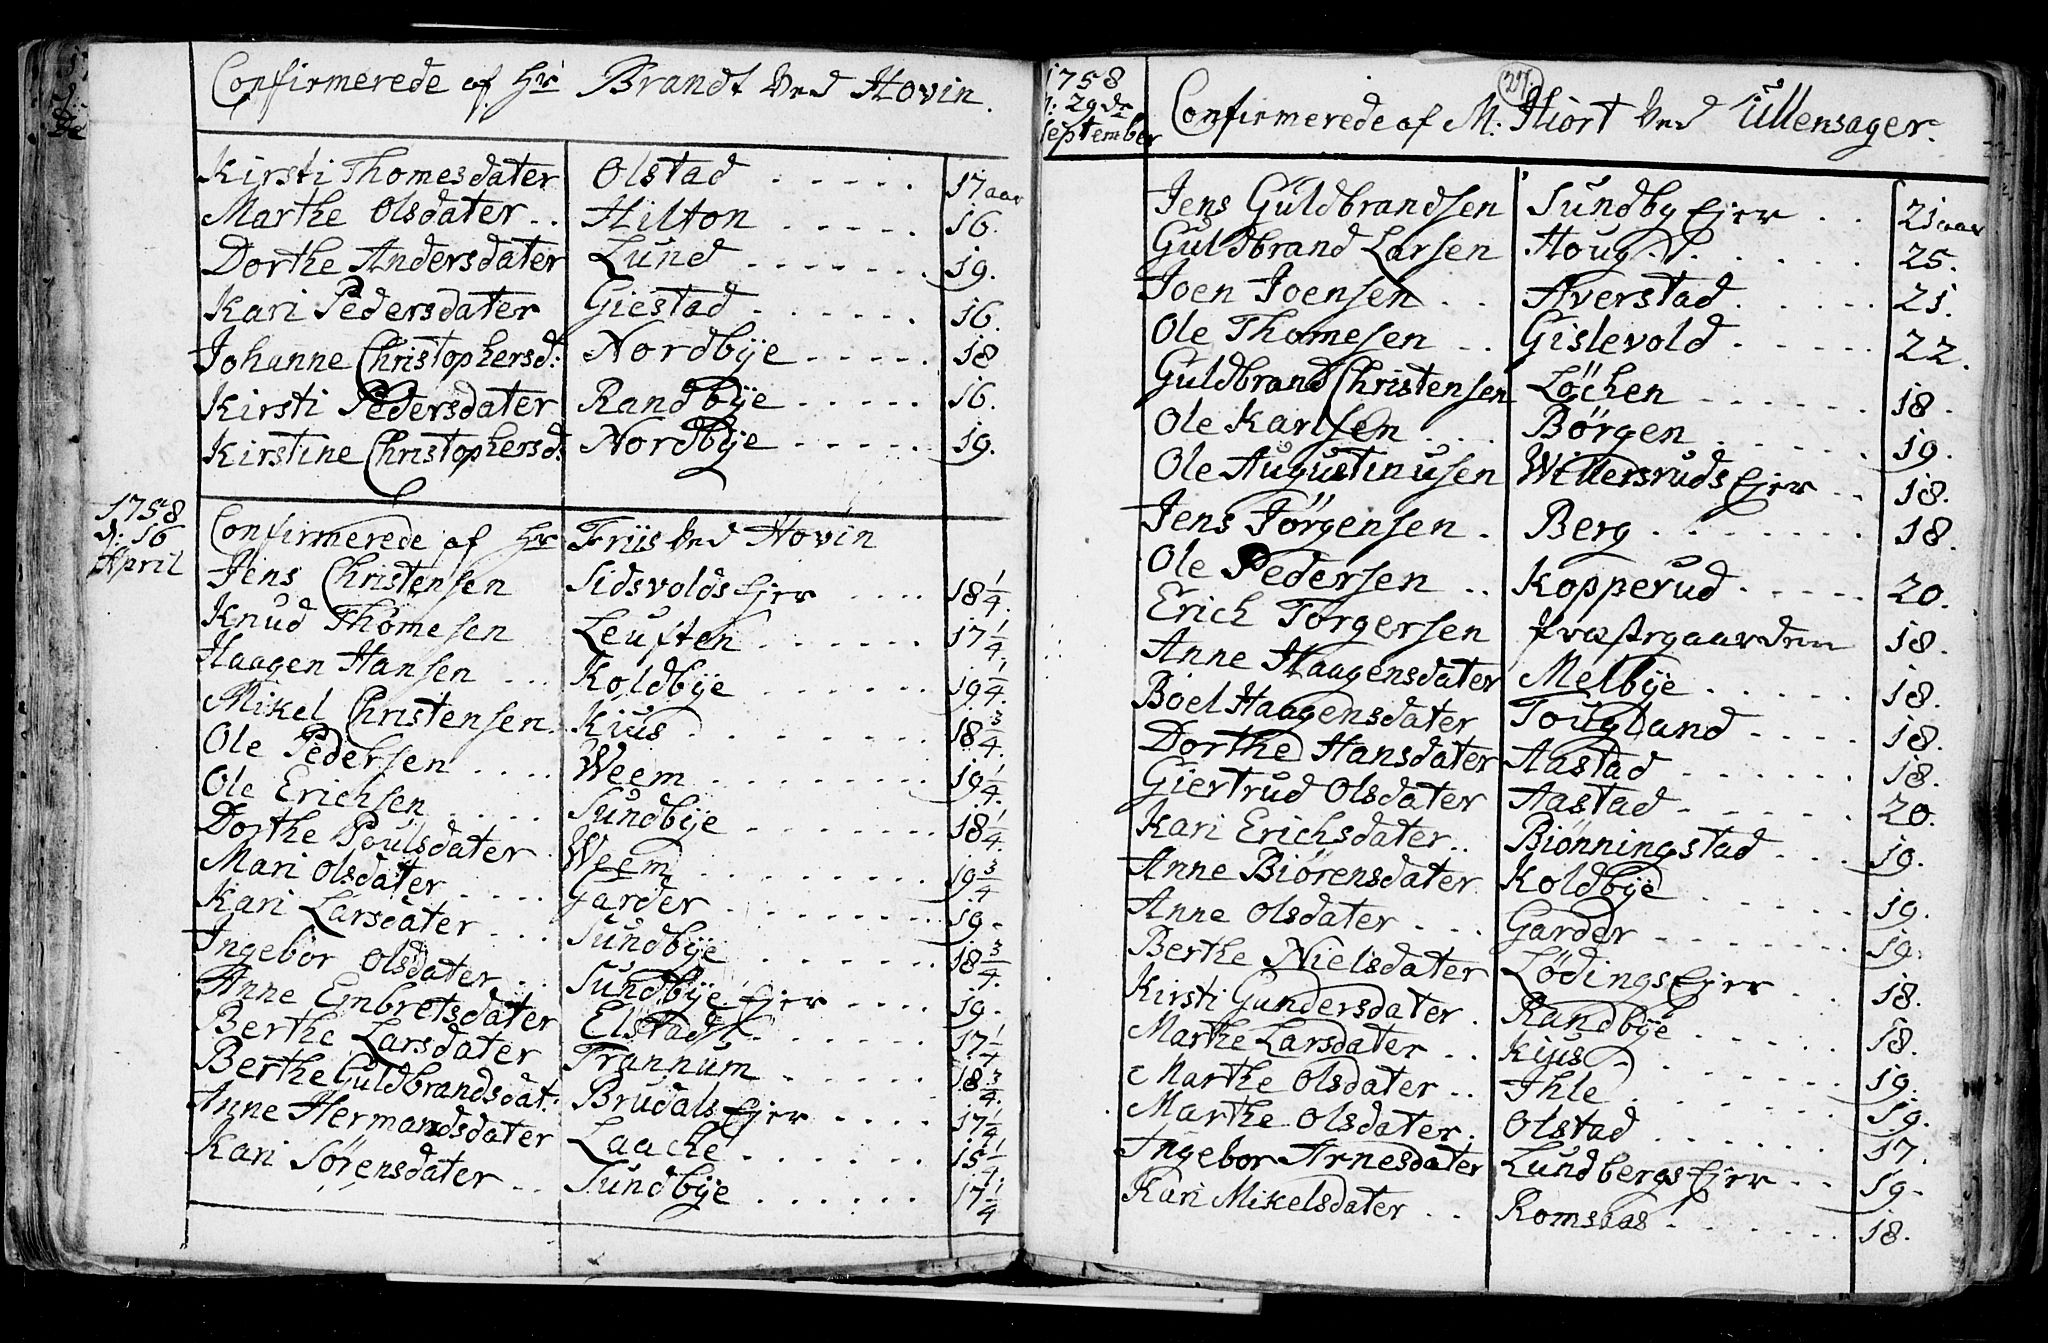 Confirmerede af Hr Brandt ved Hovin.
Kirsti Thomesdater Olstad 17 aar
Marthe Olsdater Hilton 16.
Dorthe Andersdater Lund 19.
Kari Pedersdater Giestad 16.
Johanne Christophersd: Nordbÿe 18
Kirsti Pedersdater Randbÿe 16.
Kirstine Christophersd: Nordbÿe 19.
1758
d: 16
April
Confirmerede af Hr Friis ved Hovin
Jens Christensen Sidsvolds Ejer 18 1/4.
Knud Thomesen Leuften 17 1/4
Haagen Hansen Koldbÿe 19 1/4.
Mikel Christensen Kius 18 3/4.
Ole Pedersen Weem 19 1/4.
Ole Erichsen Sundbÿe 18 1/4.
Dorthe Poulsdater Weem 19 3/4
Mari Olsdater Garder 19.
Kari Larsdater Sundbÿe 18 3/4.
Ingebor Olsdater Sundbÿe Ejer 19.
Anne Embretsdater Elstad 17 1/4
Berthe Larsdater Trannum 18 3/4.
Berthe Guldbrandsdat: Brudals Ejer 17 1/4
Anne Hermandsdater Laache 15 1/4
Kari Sørensdater Sundbÿe 17 1/4
1758
d: 29de
September
27
Confirmerede af M: Hiort ved Ullensager.
Jens Guldbrandsen Sundby Ejer 21 aar
Guldbrand Larsen Houg 25.
Joen Joensen Averstad 21.
Ole Thomesen Gislevold 22.
Guldbrand Christensen Løchen 18.
Ole Karlsen Børgen 19.
Ole Augustinusen Willersruds Ejer 18.
Jens Jørgensen Berg 18.
Ole Pedersen Kopperud 20.
Erich Torgersen Præstegaarden 18.
Anne Haagensdater Melbÿe 18.
Boel Haagensdater Tougland 18.
Dorthe Hansdater Aastad 18.
Giertrud Olsdater Aastad 20.
Kari Erichsdater Biønningstad 19.
Anne Biørensdater Koldbÿe 19.
Anne Olsdater Garder 19.
Berthe Nielsdater Lødings Ejer 18.
Kirsti Gundersdater Randbÿe 18.
Marthe Larsdater Kijus 19.
Marthe Olsdater Ihle 19.
Marthe Olsdater Olstad 17.
Ingebor Arnesdater Lundbergs Ejer 19.
Kari Mikelsdater Romsaas 18.